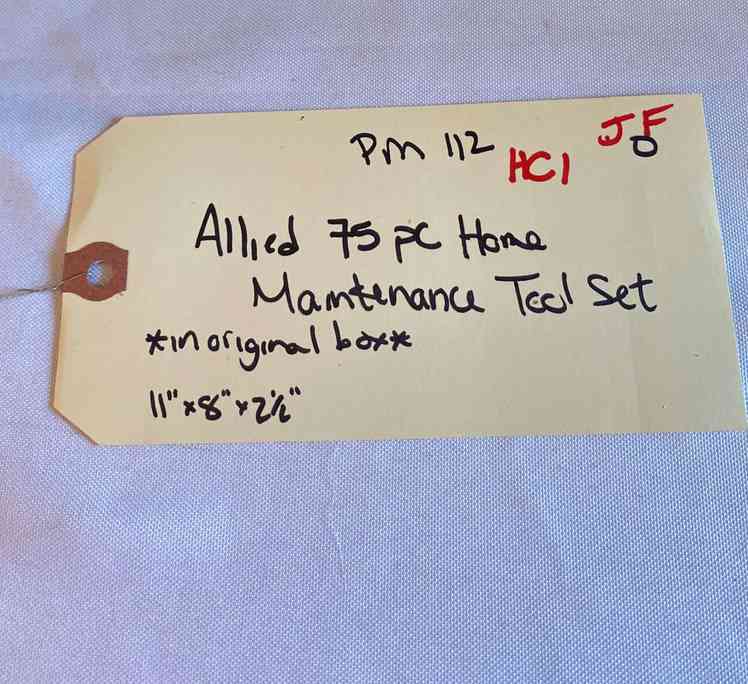 PM 112 HC1 JF
O
Allied 75 pc Home
Maintenance Tool Set
*in original box*
11" x 8" x 2½"